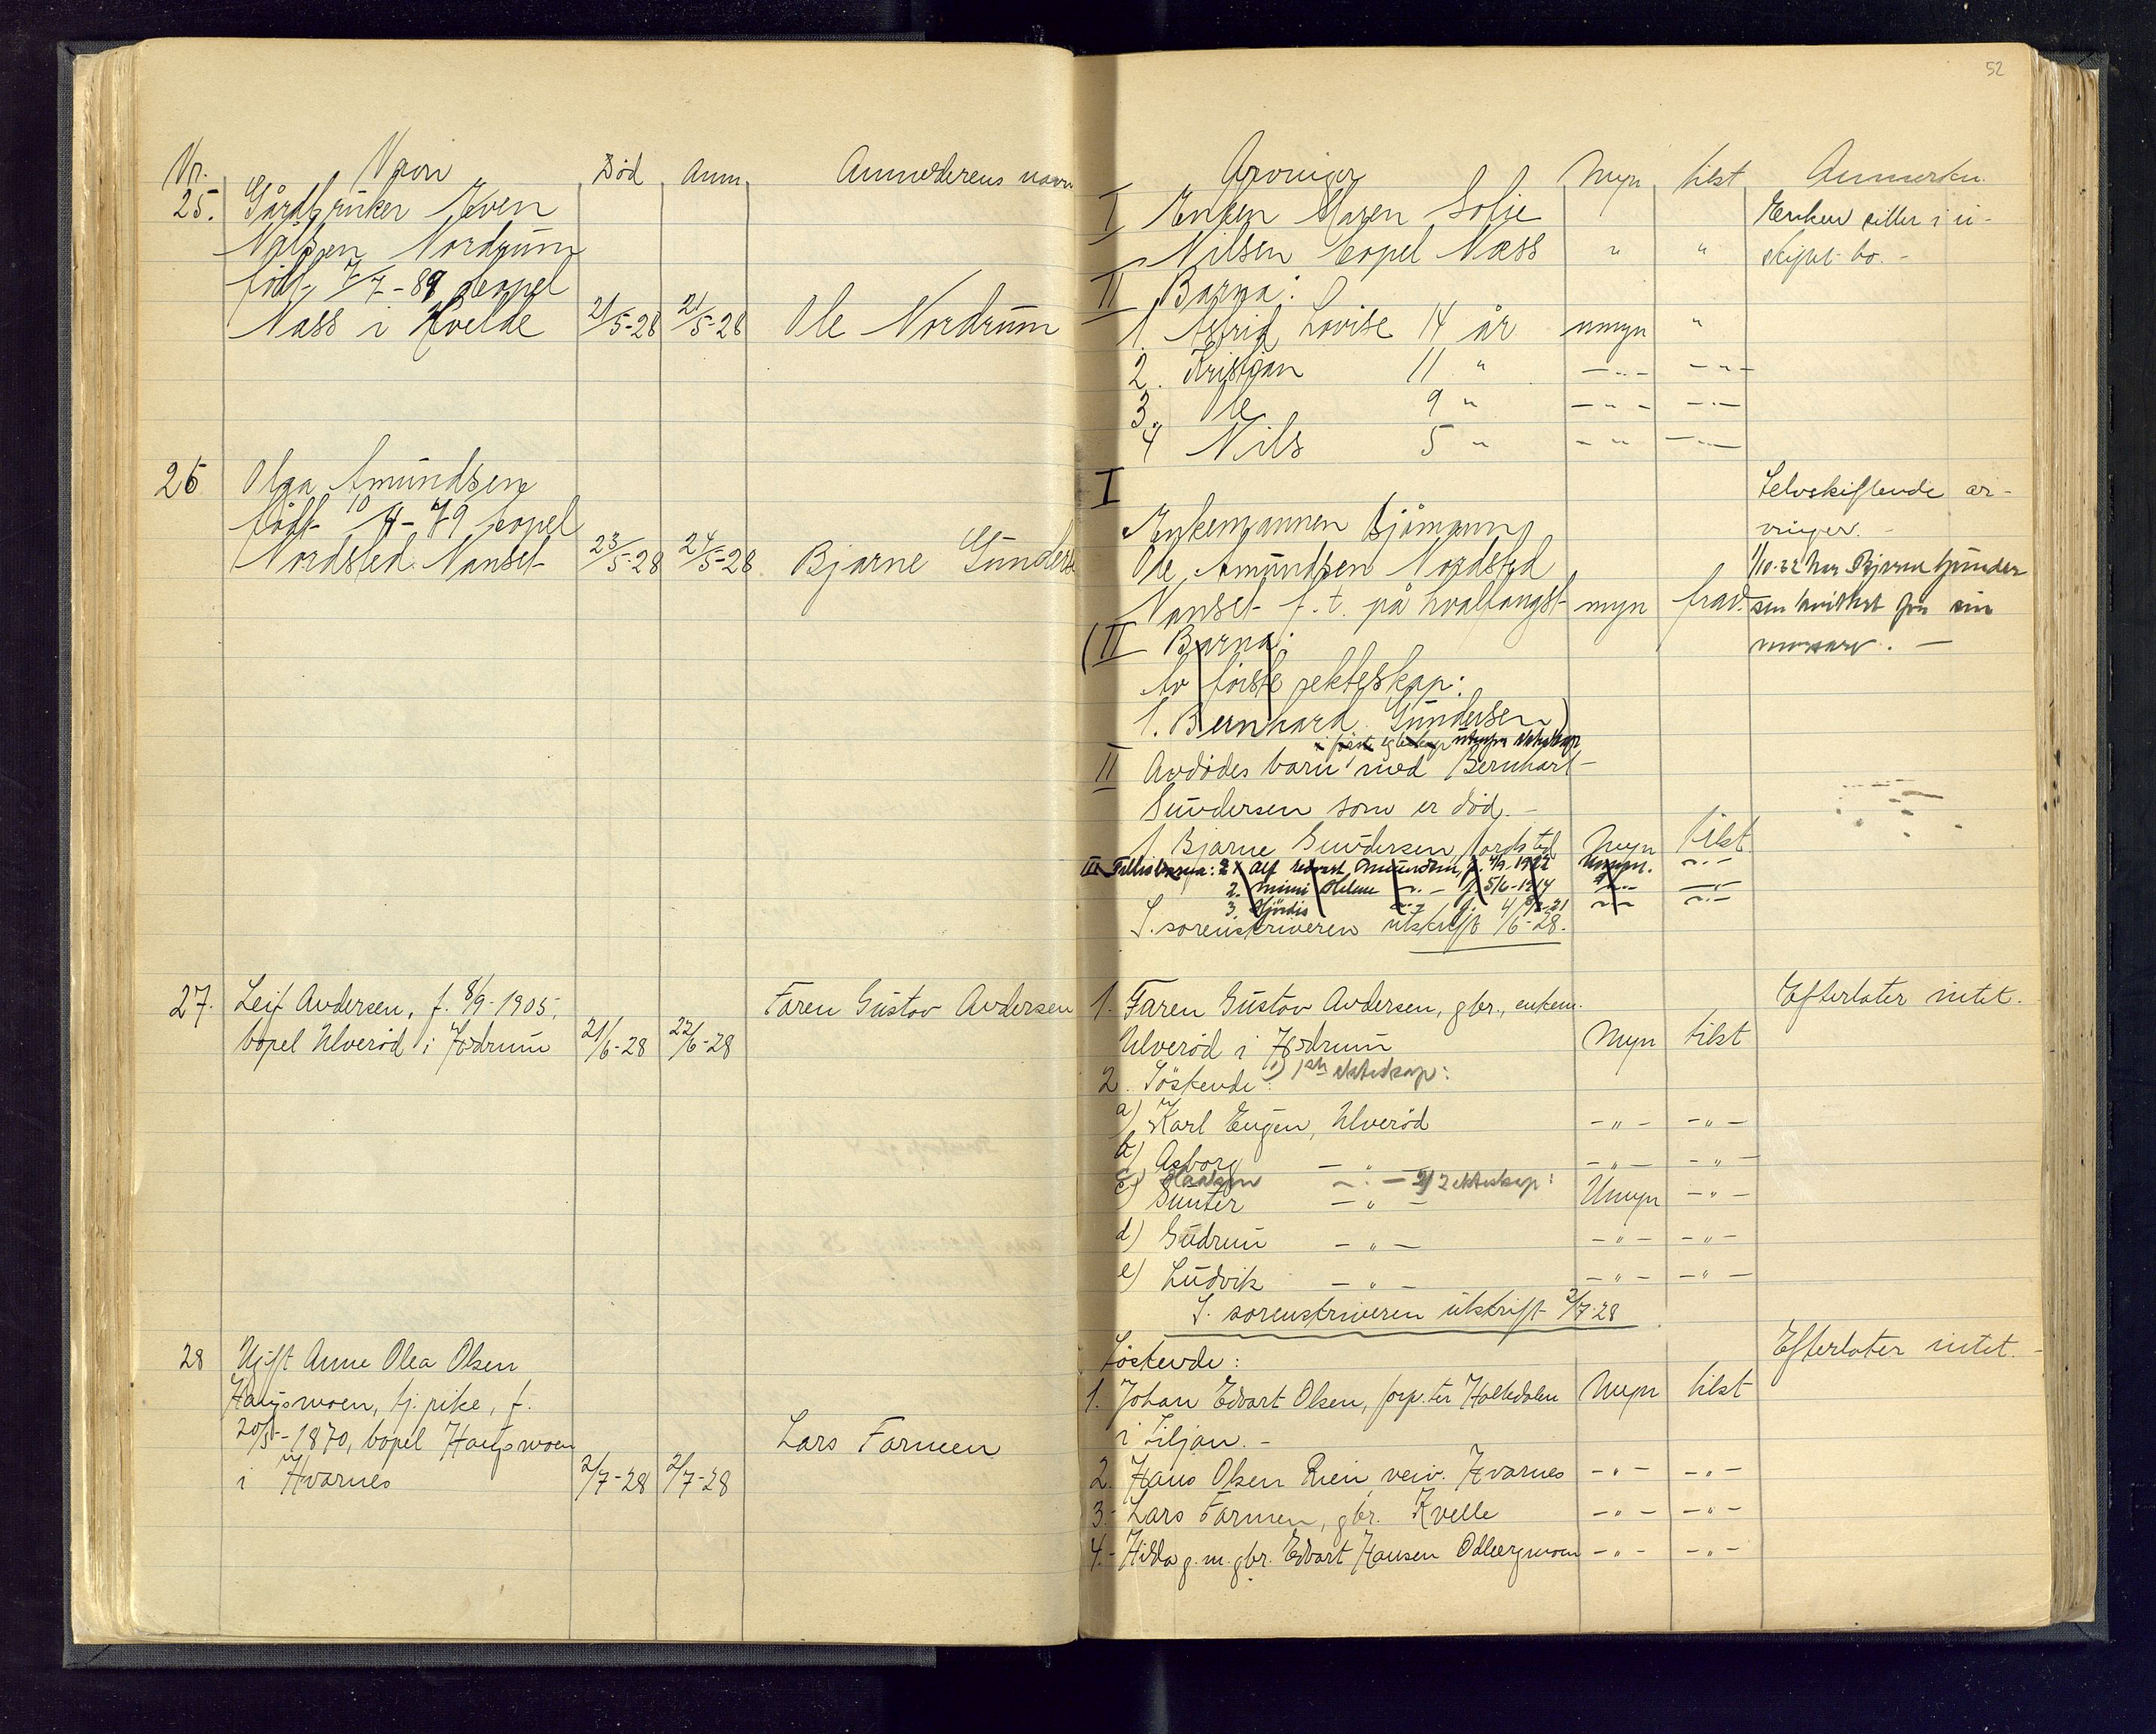 52
Nr. Navn Död Anm. Anmelderens navn
25. Gårdbruker Even
Nilsen Nordrum
født 7/7-89 bopel
Næss i Kvelde 21/5-28 21/5-28 Ole Nordrum
26 Olga Amundsen
født 10/4-79 bopel
Nordsted Nanset 23/5-28 24/5-28 Bjarne Gunderse
27. Leif Andersen, f. 8/9-1905,
bopel Ulveröd i Hedrum 21/6-28 22/6-28 Faren Gustav Andersen
28 Ugift Anne Olea Olsen
Haugsmoen, tj. pike, f.
20/5-1870, bopel Haugsmoen
i Hvarnes 2/7-28 2/7-28 Lars Farmen
Arvinger Myn tilst Anmerkn.
I Enken Maren Sofie Enken sitter i u-
Nilsen bopel Næss " " skiftet bo. -
II Barna:
1. Astrid Lovise 14 år umyn "
2. Kristian 11 " -"- -"-
3. Ole 9 " -"- -"-
4 Nils 5 " -"- -"-
I Selvskiftende ar-
Enkemannen Sjömann vinger. -
Ole Amundsen Nordsted 1/10-32 har Bjarne Gunder
Nanset f. t. på hvalfangst myn frav. sen kvittert for sin
(II Barna: morsarv. -
Av første ekteskap:
1. Bernhard Gundersen)
i første egteskap utenfor ekteskap
II Avdödes barn med Bernhart
Gundersen som er död. -
1. Bjarne Gundersen, Nordsted Myn tilst
III Fellesbarna: 1. Alf Edvart Amundsen, f. 4/9. 1922 Umyn. -"-
2. Mimi Helene -"- f. 5/6-1914 -"- -"-
3. Hjördis -"- f. 4/ -21 -"- -"-
S. sorenskriveren utskrift 1/6-28.
1. Faren Gustav Andersen, gbr., enkem. Efterlater intet.
Ulveröd i Hedrum Myn tilst
2. Söskende: 1) 1ste ekteskap:
a) Karl Eugen, Ulveröd -"- -"-
b) Asborg -"- -"- -"-
c) Haakon -"- 2) 2 ekteskap:
c) Gunter -"- Umyn -"-
d) Gudrun -"- -"- -"-
e) Ludvik -"- -"- -"-
S. sorenskriveren utskrift 2/7-28
Söskende: Efterlater intet. -
1. Johan Edvart Olsen, forp.ter Holtedalen Myn tilst
i Siljan. -
2. Hans Olsen Rien, veiv. Hvarnes -"- -"-
3. Lars Farmen, gbr. Kvelle -"- -"-
4. Hilda g. m. gbr. Edvart Hansen Odbergmoen -"- -"-